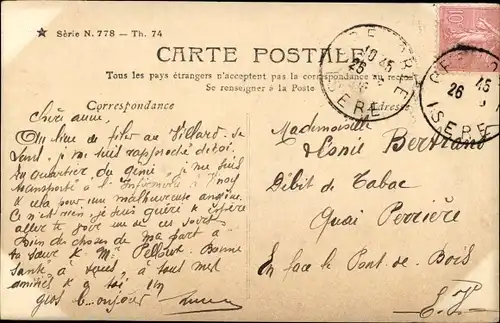 ★ Série N. 778 - Th. 74
CARTE POSTALE
Tous les pays étrangers n'acceptent pas la correspondance au
Se renseigner à la Poste
Correspondance
Adresse
ISERE
25
26
ISERE
10
Chère amie,
Au lieu de filer au Villard de
Lans, je me suis rapproché de toi.
au quartier du génie, je me suis
transporté à l'Infirmerie
cela pour une malheureuse angine.
Ce n'est rien je suis guéri & espère
aller te voir un de ces soirs.
Bien des choses de ma part à
ta sœur & M. Pelloux. Bonne
Santé à tous, à tous mes
amitiés & à toi, un
gros bonjour
Mademoiselle
Bertrand
Débit de Tabac
Quai Perrière
En face le Pont de Bois
E.V.